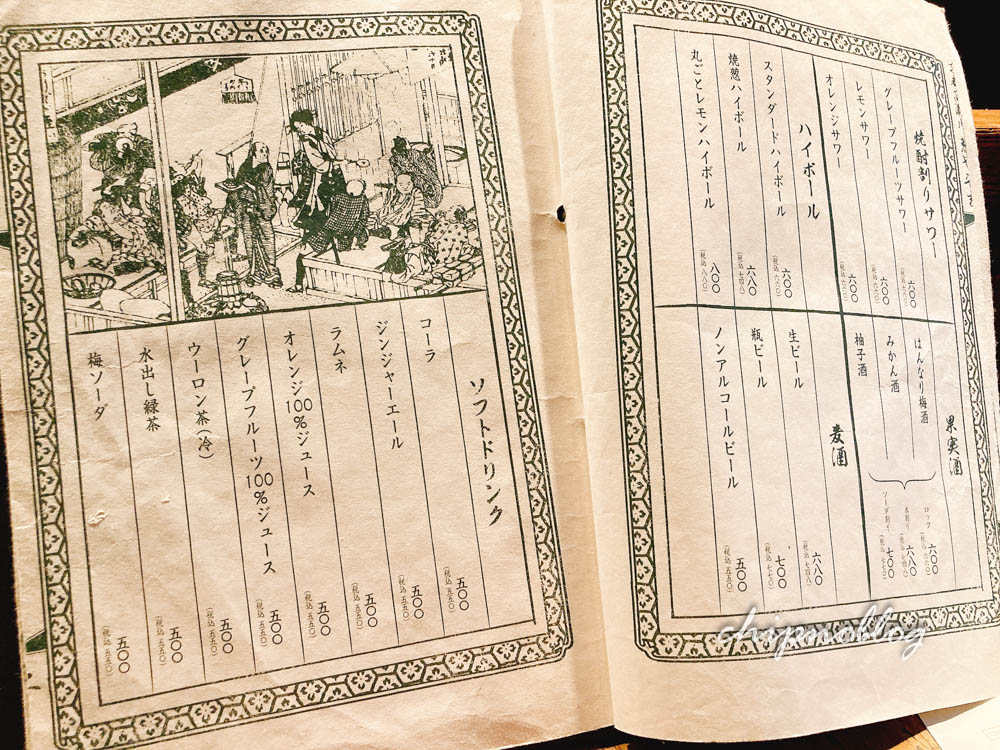 焼酎割りサワー
グレープフルーツサワー
六〇〇
(税込 六六〇)
レモンサワー
六〇〇
(税込 六六〇)
オレンジサワー
六〇〇
(税込 六六〇)
ハイボール
スタンダードハイボール
六〇〇
(税込 六六〇)
焼葱ハイボール
六八〇
(税込 七四八)
丸ごとレモンハイボール
八〇〇
(税込 八八〇)
果実酒
はんなり梅酒
みかん酒
柚子酒
ロック
六〇〇
(税込 六六〇)
水割り
六八〇
(税込 七四八)
ソーダ割り
七〇〇
麦酒
生ビール
六八〇
(税込 七四八)
瓶ビール
七〇〇
(税込 七七〇)
ノンアルコールビール
五〇〇
(税込 五五〇)
ソフトドリンク
コーラ
五〇〇
(税込 五五〇)
ジンジャーエール
五〇〇
(税込 五五〇)
ラムネ
五〇〇
(税込 五五〇)
オレンジ100%ジュース
五〇〇
(税込 五五〇)
グレープフルーツ100%ジュース
五〇〇
(税込 五五〇)
ウーロン茶(冷)
五〇〇
(税込 五五〇)
水出し緑茶
五〇〇
(税込 五五〇)
梅ソーダ
五〇〇
(税込 五五〇)
chipmoblog